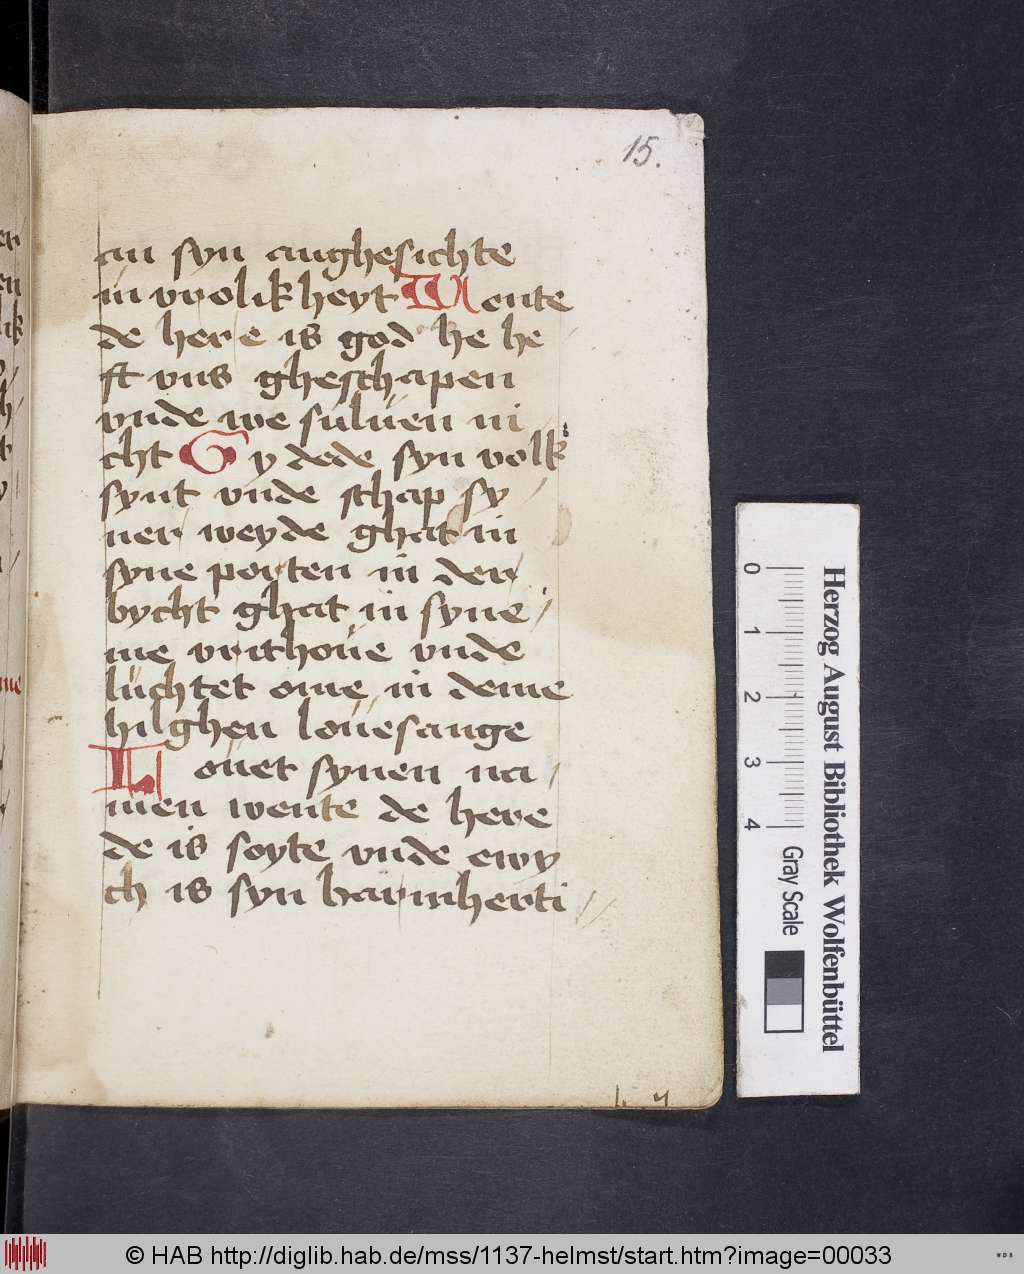 15.
an syn anghesichte
in vrolik heyt Wente
de here is god he he
ft vns gheschapen
vnde we suluen ni
cht Gy dede syn volk
synt vnde schap sy
ner weyde ghat in
syne porten in der
bycht ghat in syne
me vrithoue vnde
luchtet ome in deme
hilghen louesange
Louet synen na
men wente de here
de is soyte vnde ewy
ch is syn barmherti
0 1 2 3 4
Gray Scale
Herzog August Bibliothek Wolfenbüttel
© HAB http://diglib.hab.de/mss/1137-helmst/start.htm?image=00033